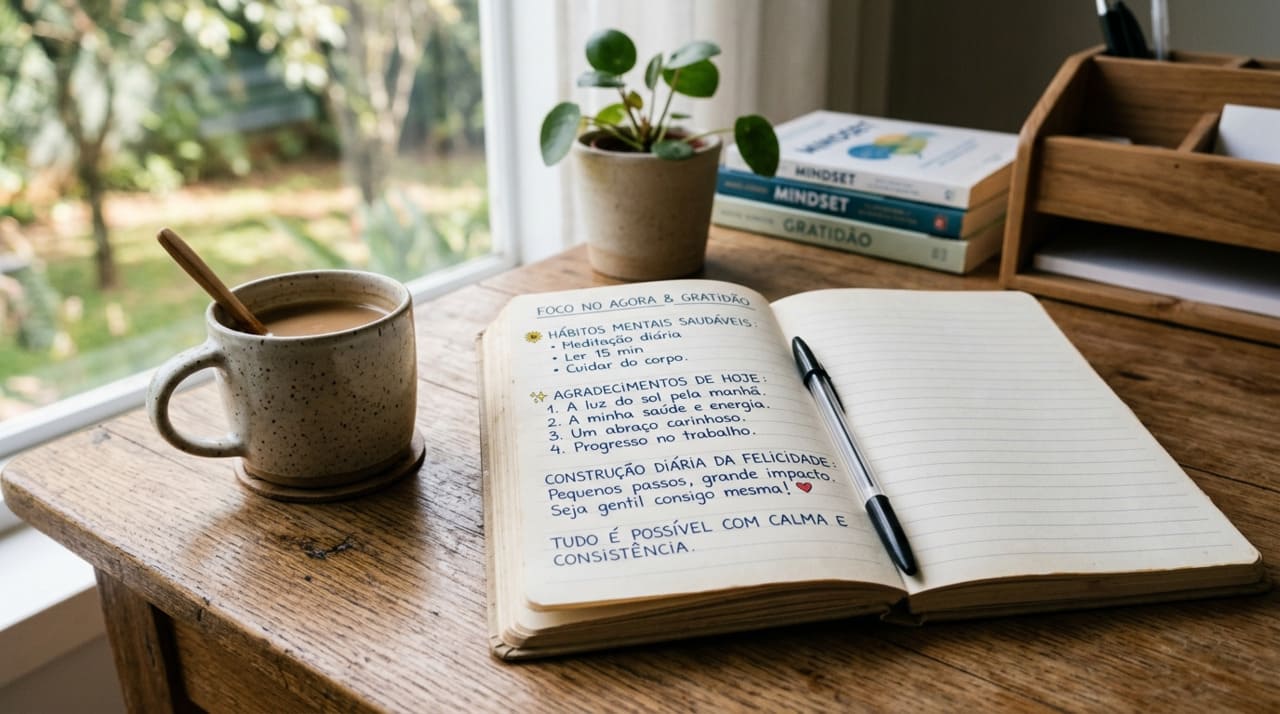 FOCO NO AGORA & GRATIDÃO
HÁBITOS MENTAIS SAUDÁVEIS:
• Meditação diária
• Ler 15 min
• Cuidar do corpo.
AGRADECIMENTOS DE HOJE:
1. A luz do sol pela manhã.
2. A minha saúde e energia.
3. Um abraço carinhoso.
4. Progresso no trabalho.
CONSTRUÇÃO DIÁRIA DA FELICIDADE:
Pequenos passos, grande impacto.
Seja gentil consigo mesma!
TUDO É POSSÍVEL COM CALMA E
CONSISTÊNCIA.
MINDSET
MINDSET
MINDSET
GRATIDÃO